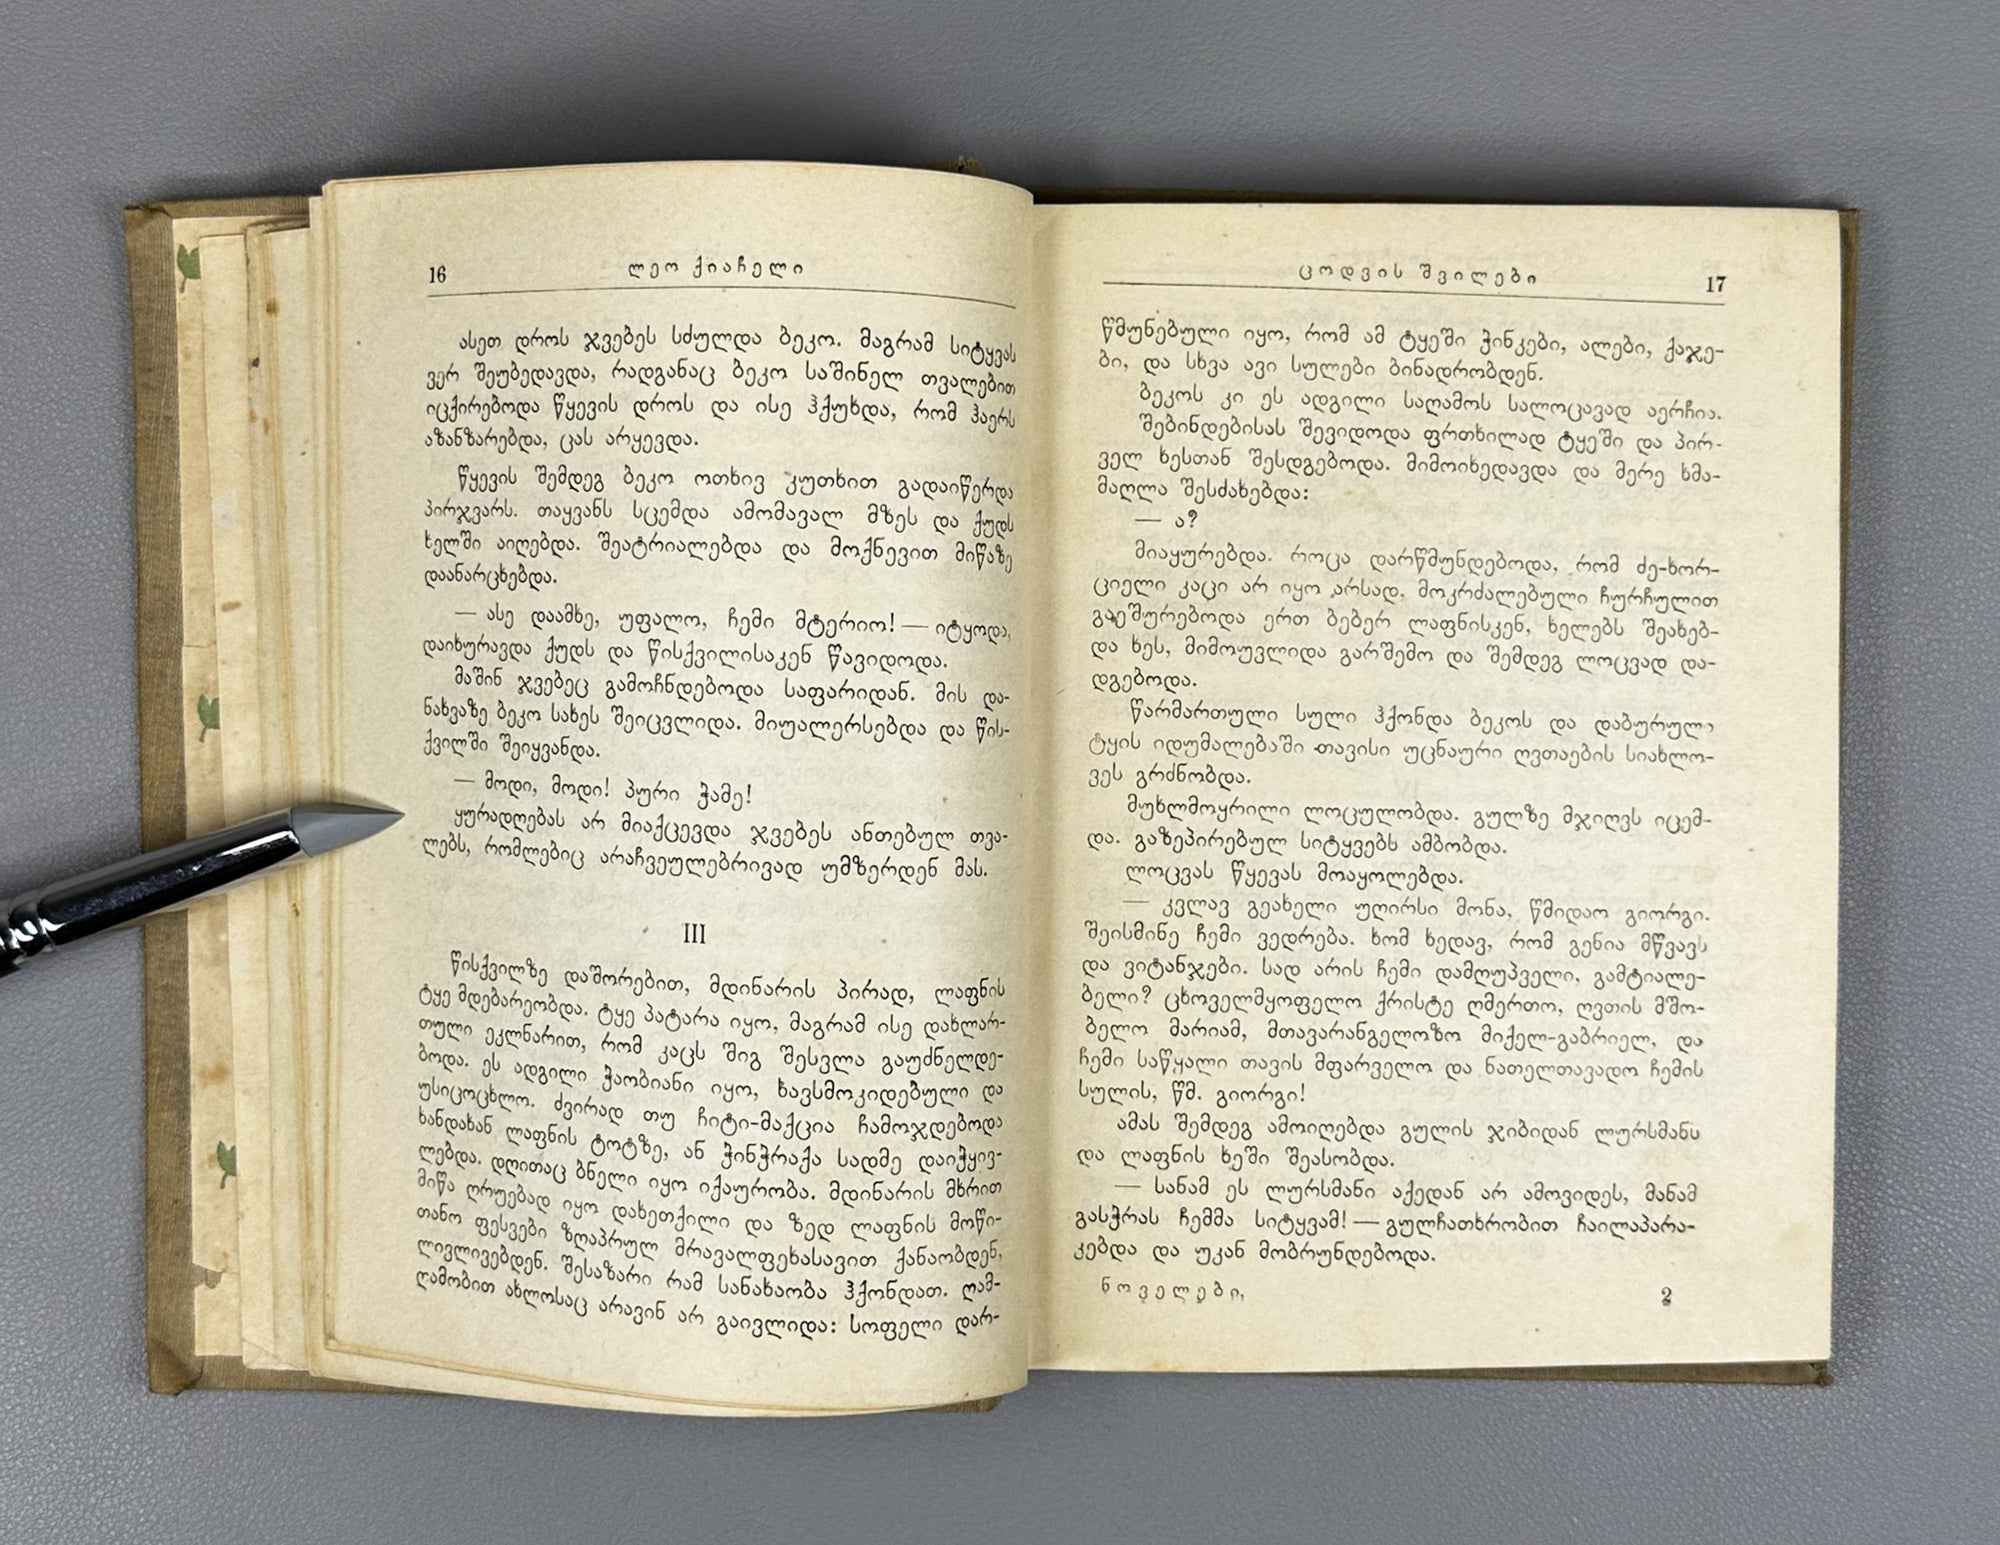 16 ლეო ქიაჩელი
ასეთ დროს ჯვებეს სძულდა ბეკო. მაგრამ სიტყვას
ვერ შეუბედავდა, რადგანაც ბეკო საშინელ თვალებით
იცქირებოდა წყევის დროს და ისე ჰქუხდა, რომ ჰაერს
აზანზარებდა, ცას არყევდა.
წყევის შემდეგ ბეკო ოთხივ კუთხით გადაიწერდა
პირჯვარს. თაყვანს სცემდა ამომავალ მზეს და ქუდს
ხელში აიღებდა. შეატრიალებდა და მოქნევით მიწაზე
დაანარცხებდა.
— ასე დაამხე, უფალო, ჩემი მტერიო! — იტყოდა,
დაიხურავდა ქუდს და წისქვილისაკენ წავიდოდა.
მაშინ ჯვებეც გამოჩნდებოდა საფარიდან. მის და-
ნახვაზე ბეკო სახეს შეიცვლიდა. მიუალერსებდა და წის-
ქვილში შეიყვანდა.
— მოდი, მოდი! პური ჭამე!
ყურადღებას არ მიაქცევდა ჯვებეს ანთებულ თვა-
ლებს, რომლებიც არაჩვეულებრივად უმზერდენ მას.
III
წისქვილზე დაშორებით, მდინარის პირად, ლაფნის
ტყე მდებარეობდა. ტყე პატარა იყო, მაგრამ ისე დახლარ-
თული ეკლნარით, რომ კაცს შიგ შესვლა გაუძნელდე-
ბოდა. ეს ადგილი ჭაობიანი იყო, ხავსმოკიდებული და
უსიცოცხლო. ძვირად თუ ჩიტი-მაქცია ჩამოჯდებოდა
ხანდახან ლაფნის ტოტზე, ან ჭინჭრაქა სადმე დაიჭყივ-
ლებდა. დღითაც ბნელი იყო იქაურობა. მდინარის მხრით
მიწა ღრუებად იყო დახეთქილი და ზედ ლაფნის მოწი-
თანო ფესვები ზღაპრულ მრავალფეხასავით ქანაობდენ,
ლივლივებდენ. შესაზარი რამ სანახაობა ჰქონდათ. ღამ-
ღამობით ახლოსაც არავინ არ გაივლიდა: სოფელი დარ-
ცოდვის შვილები 17
წმუნებული იყო, რომ ამ ტყეში ჭინკები, ალები, ქაჯე-
ბი, და სხვა ავი სულები ბინადრობდენ.
ბეკოს კი ეს ადგილი საღამოს სალოცავად აერჩია.
შებინდებისას შევიდოდა ფრთხილად ტყეში და პირ-
ველ ხესთან შესდგებოდა. მიმოიხედავდა და მერე ხმა-
მაღლა შესძახებდა:
— ა?
მიაყურებდა. როცა დარწმუნდებოდა, რომ ძე-ხორ-
ციელი კაცი არ იყო არსად, მოკრძალებული ჩურჩულით
გაეშურებოდა ერთ ბებერ ლაფნისკენ, ხელებს შეახებ-
და ხეს, მიმოუვლიდა გარშემო და შემდეგ ლოცვად და-
დგებოდა.
წარმართული სული ჰქონდა ბეკოს და დაბურული
ტყის იდუმალებაში თავისი უცნაური ღვთაების სიახლო-
ვეს გრძნობდა.
მუხლმოყრილი ლოცულობდა. გულზე მჯიღვს იცემ-
და. გაზეპირებულ სიტყვებს ამბობდა.
ლოცვას წყევას მოაყოლებდა.
— კვლავ გეახელი უღირსი მონა, წმიდაო გიორგი.
შეისმინე ჩემი ვედრება. ხომ ხედავ, რომ გენია მწვავს
და ვიტანჯები. სად არის ჩემი დამღუპველი, გამტიალე-
ბელი? ცხოველმყოფელო ქრისტე ღმერთო, ღვთის მშო-
ბელო მარიამ, მთავარანგელოზო მიქელ-გაბრიელ, და
ჩემი საწყალი თავის მფარველო და ნათელთავადო ჩემის
სულის, წმ. გიორგი!
ამას შემდეგ ამოიღებდა გულის ჯიბიდან ლურსმანს
და ლაფნის ხეში შეასობდა.
— სანამ ეს ლურსმანი აქედან არ ამოვიდეს, მანამ
გასჭრას ჩემმა სიტყვამ! — გულჩათხრობით ჩაილაპარა-
კებდა და უკან მობრუნდებოდა.
ნოველები, 2